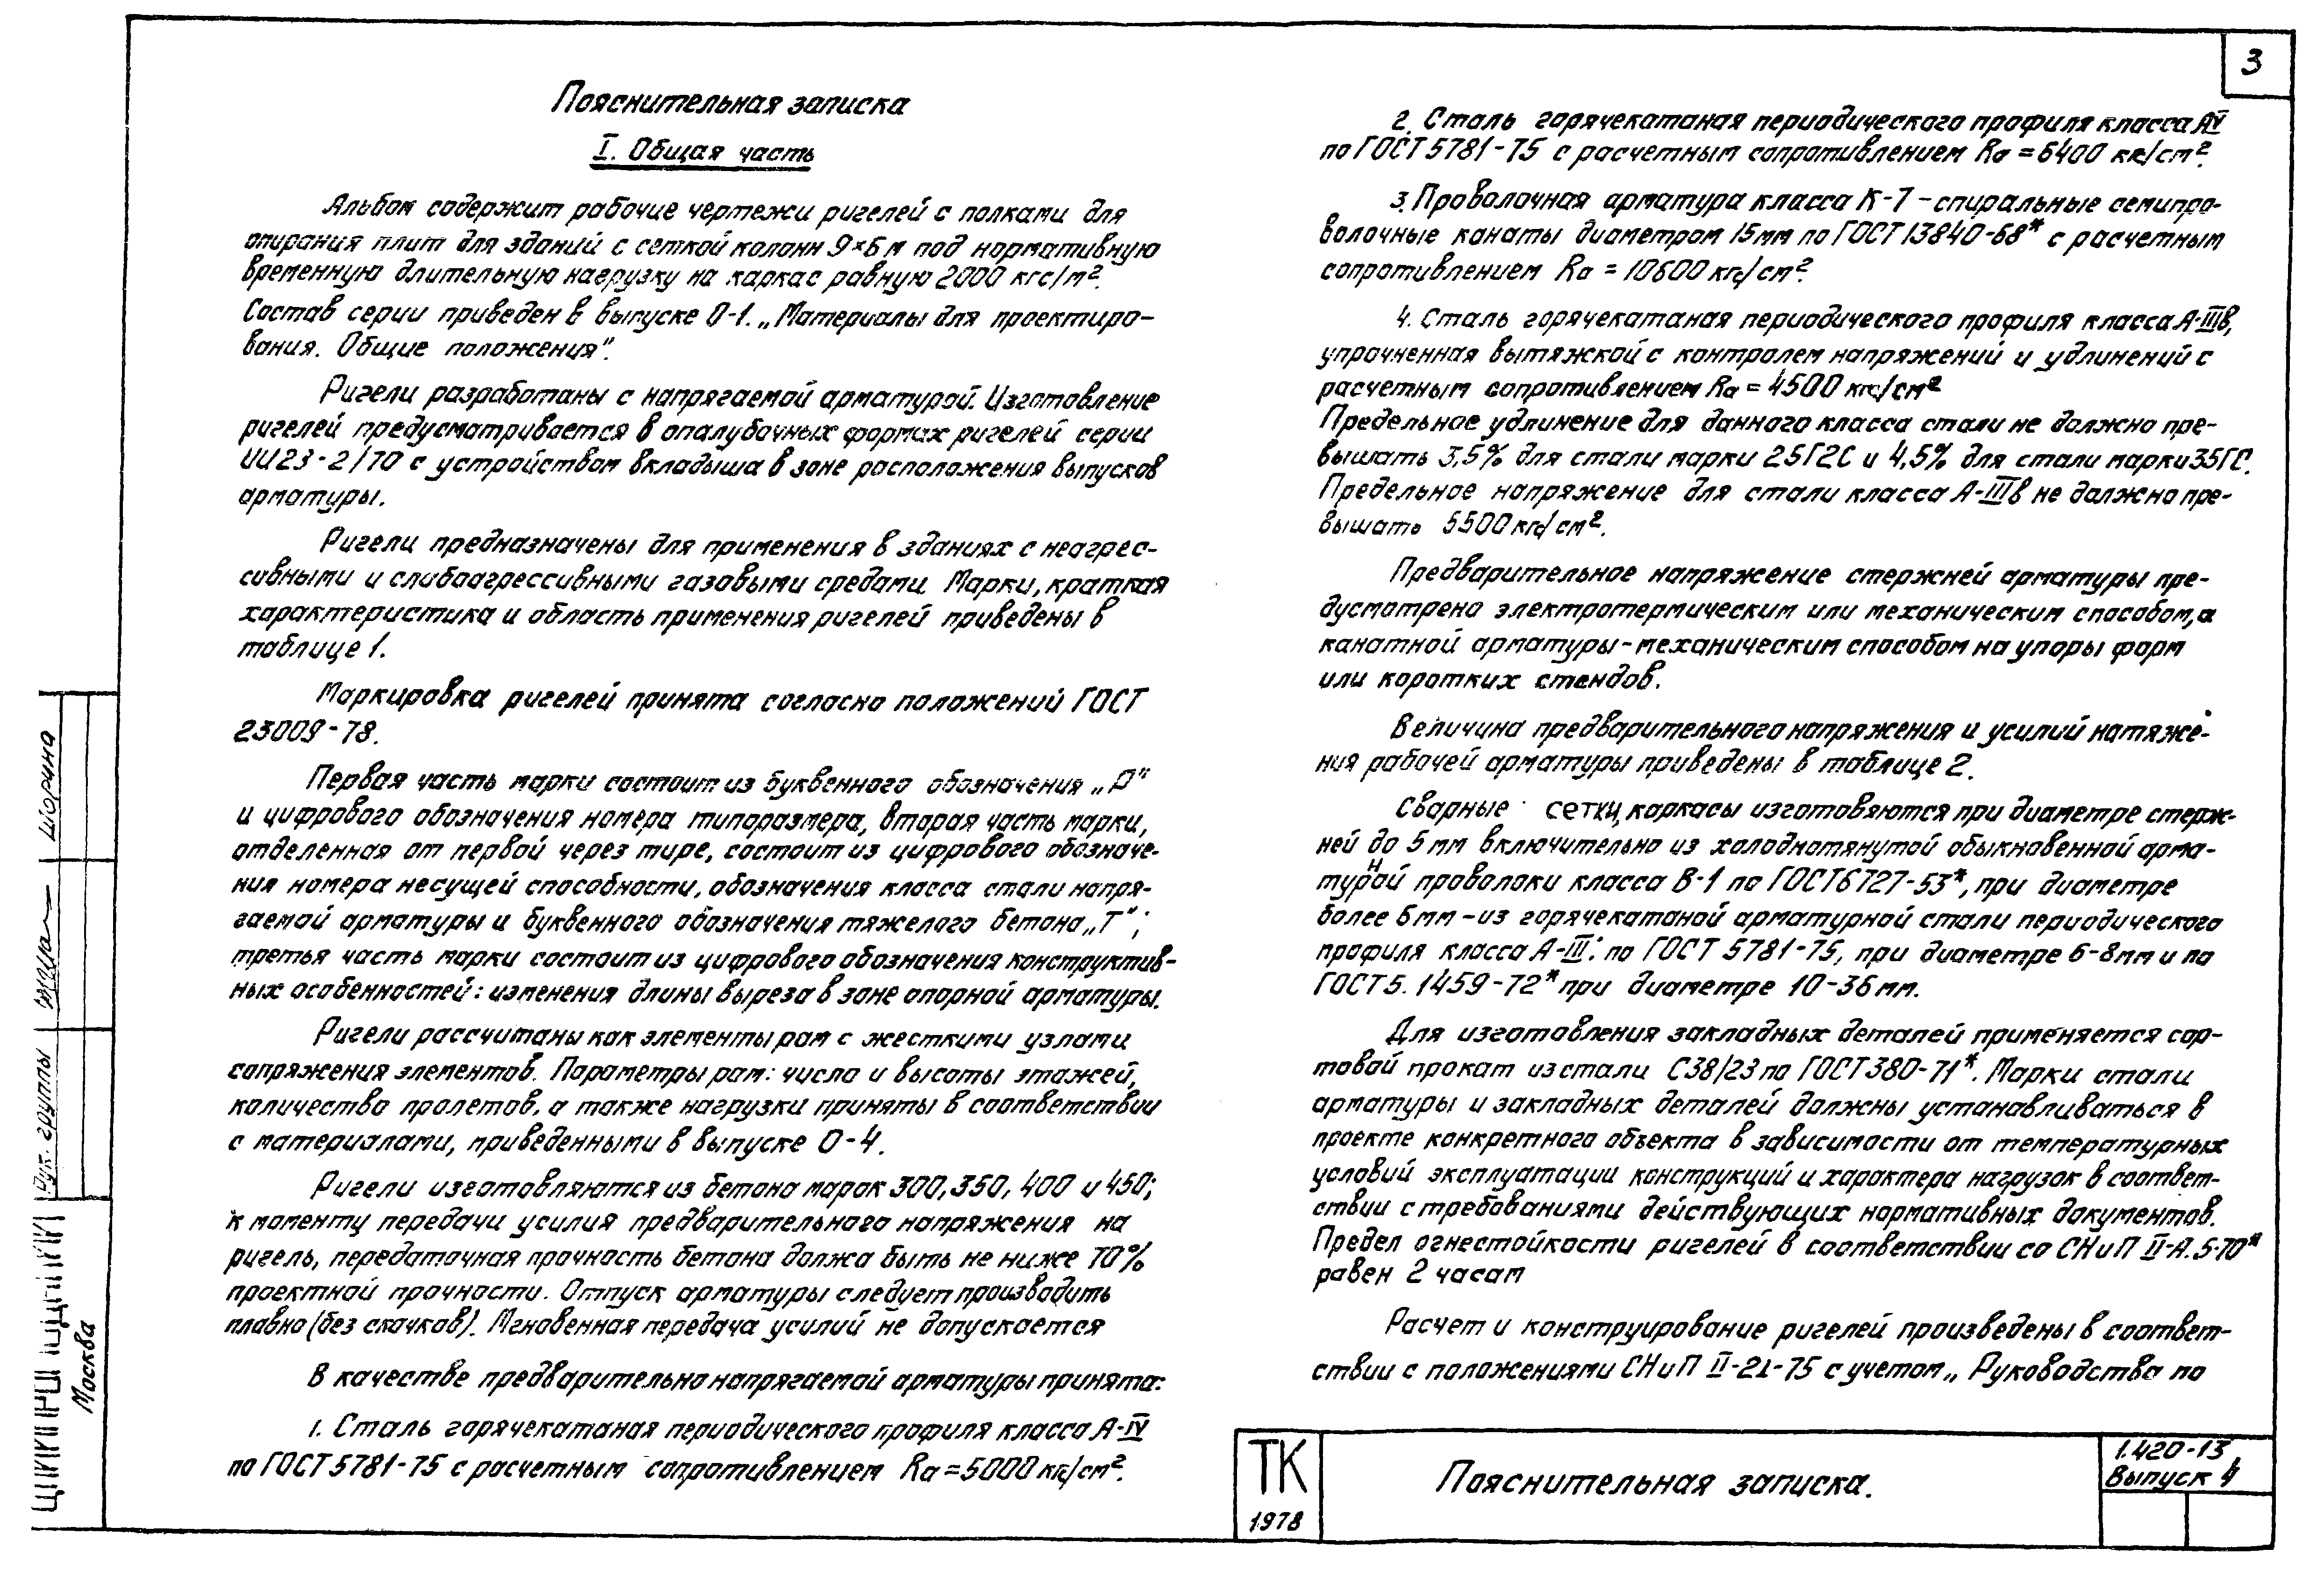 3
Пояснительная записка
I. Общая часть
Альбом содержит рабочие чертежи ригелей с полками для
опирания плит для зданий с сеткой колонн 9×6 м под нормативную
временную длительную нагрузку на каркас равную 2000 кгс/м².
Состав серии приведен в выпуске 0-1. „Материалы для проектиро-
вания. Общие положения".
Ригели разработаны с напрягаемой арматурой. Изготовление
ригелей предусматривается в опалубочных формах ригелей серии
ИИ23-2/70 с устройством вкладыша в зоне расположения выпусков
арматуры.
Ригели предназначены для применения в зданиях с неагрес-
сивными и слабоагрессивными газовыми средами. Марки, краткая
характеристика и область применения ригелей приведены в
таблице 1.
Маркировка ригелей принята согласно положений ГОСТ
23009-78.
Первая часть марки состоит из буквенного обозначения „Р"
и цифрового обозначения номера типоразмера, вторая часть марки,
отделенная от первой через тире, состоит из цифрового обозначе-
ния номера несущей способности, обозначения класса стали напря-
гаемой арматуры и буквенного обозначения тяжелого бетона „Т";
третья часть марки состоит из цифрового обозначения конструктив-
ных особенностей: изменения длины выреза в зоне опорной арматуры.
Ригели рассчитаны как элементы рам с жесткими узлами
сопряжения элементов. Параметры рам: число и высоты этажей,
количество пролетов, а также нагрузки приняты в соответствии
с материалами, приведенными в выпуске 0-4.
Ригели изготовляются из бетона марок 300, 350, 400 и 450;
к моменту передачи усилия предварительного напряжения на
ригель, передаточная прочность бетона должа быть не ниже 70%
проектной прочности. Отпуск арматуры следует производить
плавно (без скачков). Мгновенная передача усилий не допускается
В качестве предварительно напрягаемой арматуры принята:
1. Сталь горячекатаная периодического профиля класса А-IV
по ГОСТ 5781-75 с расчетным сопротивлением Rа = 5000 кгс/см².
2. Сталь горячекатаная периодического профиля класса АV
по ГОСТ 5781-75 с расчетным сопротивлением Rа = 6400 кгс/см².
3. Проволочная арматура класса К-7 - спиральные семипро-
волочные канаты диаметром 15мм по ГОСТ 13840-68* с расчетным
сопротивлением Rа = 10600 кгс/см².
4. Сталь горячекатаная периодического профиля класса А-IIIв,
упрочненная вытяжкой с контролем напряжений и удлинений с
расчетным сопротивлением Rа = 4500 кгс/см²
Предельное удлинение для данного класса стали не должно пре-
вышать 3,5% для стали марки 25Г2С и 4,5% для стали марки 35ГС.
Предельное напряжение для стали класса А-IIIв не должно пре-
вышать 5500 кгс/см².
Предварительное напряжение стержней арматуры пре-
дусмотрено электротермическим или механическим способом, а
канатной арматуры - механическим способом на упоры форм
или коротких стендов.
Величина предварительного напряжения и усилий натяже-
ния рабочей арматуры приведены в таблице 2.
Сварные сетки, каркасы изготовяются при диаметре стерж-
ней до 5 мм включительно из холоднотянутой обыкновенной арма-
турной проволоки класса В-1 по ГОСТ 6727-53*, при диаметре
более 6 мм - из горячекатаной арматурной стали периодического
профиля класса А-III: по ГОСТ 5781-75, при диаметре 6-8мм и по
ГОСТ 5.1459-72* при диаметре 10-36 мм.
Для изготовления закладных деталей применяется сор-
товой прокат из стали С38/23 по ГОСТ 380-71*. Марки стали
арматуры и закладных деталей должны устанавливаться в
проекте конкретного объекта в зависимости от температурных
условий эксплуатации конструкций и характера нагрузок в соответ-
ствии с требованиями действующих нормативных документов.
Предел огнестойкости ригелей в соответствии со СНиП II-А.5-70*
равен 2 часам
Расчет и конструирование ригелей произведены в соответ-
ствии с положениями СНиП II-21-75 с учетом „ Руководства по
ТК
1978
Пояснительная записка.
1.420-13
Выпуск 4
Рук. группы
Шорина
Москва